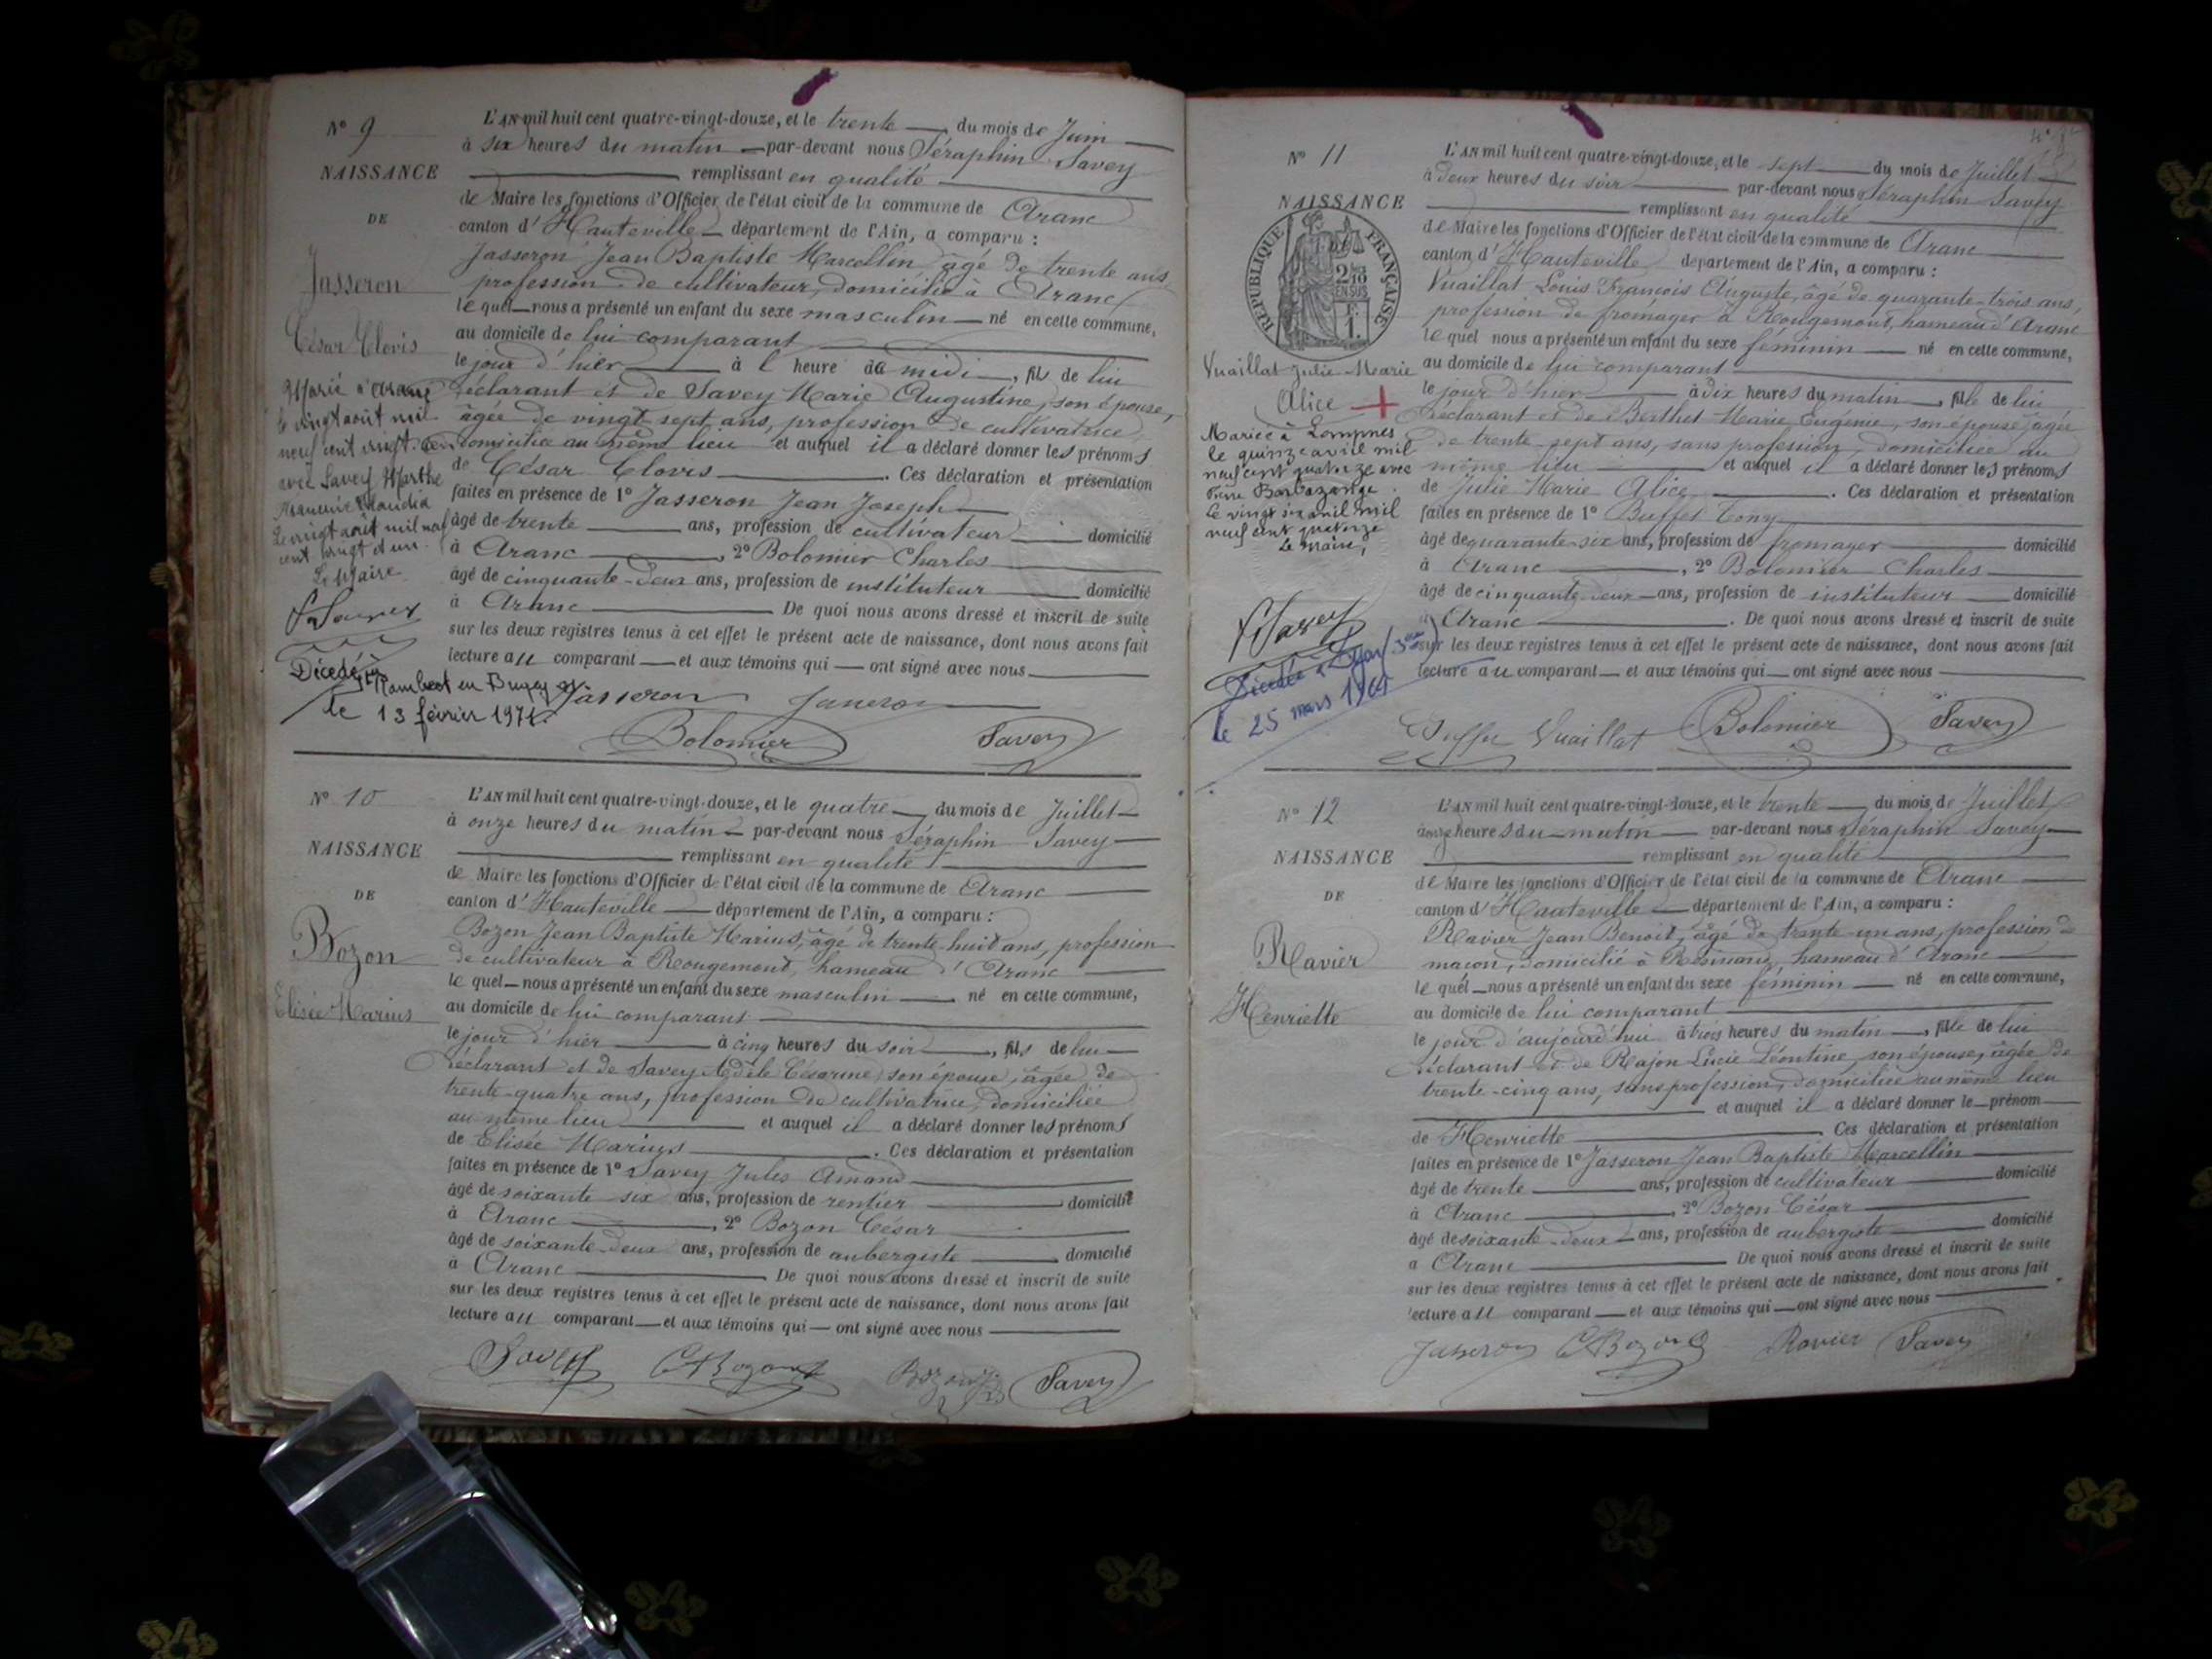 N° 9
NAISSANCE
DE
Jasseron
César Clovis
Marié à Aranc
le vingt août mil
neuf cent vingt-un
avec Savey Marthe
Claudia
Le vingt août mil neuf
cent vingt et un.
Le Maire
Décédé à St Rambert en Bugey
le 13 février 197
L'AN mil huit cent quatre-vingt-douze, et le trente du mois de Juin
à six heures du matin par-devant nous Séraphin Savey
remplissant en qualité
de Maire les fonctions d'Officier de l'état civil de la commune de Aranc
canton d'Hauteville département de l'Ain, a comparu :
Jasseron Jean Baptiste Marcellin âgé de trente ans
profession de cultivateur, domicilié à Aranc
lequel nous a présenté un enfant du sexe masculin né en cette commune,
au domicile de lui comparant
le jour d'hier à l heure de midi, fils de lui
déclarant et de Savey Marie Augustine, son épouse,
âgée de vingt sept ans, profession de cultivatrice,
domiciliée au même lieu et auquel il a déclaré donner les prénoms
de César Clovis. Ces déclaration et présentation
faites en présence de 1° Jasseron Jean Joseph
âgé de trente ans, profession de cultivateur domicilié
à Aranc, 2° Bolomier Charles
âgé de cinquante-deux ans, profession de instituteur domicilié
à Aranc De quoi nous avons dressé et inscrit de suite
sur les deux registres tenus à cet effet le présent acte de naissance, dont nous avons fait
lecture au comparant et aux témoins qui ont signé avec nous
Jasseron Jasseron
Bolomier Savey
N° 10
NAISSANCE
DE
Bozon
Elisée Marius
L'AN mil huit cent quatre-vingt-douze, et le quatre du mois de Juillet
à onze heures du matin par-devant nous Séraphin Savey
remplissant en qualité
de Maire les fonctions d'Officier de l'état civil de la commune de Aranc
canton d'Hauteville département de l'Ain, a comparu :
Bozon Jean Baptiste Marius, âgé de trente-huit ans, profession
de cultivateur à Rougemont, hameau d'Aranc
lequel nous a présenté un enfant du sexe masculin né en cette commune,
au domicile de lui comparant
le jour d'hier à cinq heures du soir, fils de lui
déclarant et de Savey Adèle Césarine, son épouse, âgée de
trente-quatre ans, profession de cultivatrice, domiciliée
au même lieu et auquel il a déclaré donner les prénoms
de Elisée Marius. Ces déclaration et présentation
faites en présence de 1° Savey Jules Amand
âgé de soixante six ans, profession de rentier domicilié
à Aranc, 2° Bozon César
âgé de soixante-deux ans, profession de aubergiste domicilié
à Aranc De quoi nous avons dressé et inscrit de suite
sur les deux registres tenus à cet effet le présent acte de naissance, dont nous avons fait
lecture au comparant et aux témoins qui ont signé avec nous
Savey C Bozon Bozon Savey
N° 11
NAISSANCE
RÉPUBLIQUE FRANÇAISE
2/10
EN SUS
Vuaillat Julie Marie
Alice
Mariée à Lompnes
le quinze avril mil
neuf cent quatorze avec
Barbazange
Le vingt six avril mil
neuf cent quatorze
Le Maire,
Décédée à Lyon 3ème
le 25 mars 1964
L'AN mil huit cent quatre-vingt-douze, et le sept du mois de Juillet
à deux heures du soir par-devant nous Séraphin Savey
remplissant en qualité
de Maire les fonctions d'Officier de l'état civil de la commune de Aranc
canton d'Hauteville département de l'Ain, a comparu :
Vuaillat Louis François Auguste, âgé de quarante-trois ans,
profession de fromager à Rougemont, hameau d'Aranc
lequel nous a présenté un enfant du sexe féminin né en cette commune,
au domicile de lui comparant
le jour d'hier à dix heures du matin, fille de lui
déclarant et de Berthet Marie Eugénie, son épouse, âgée
de trente-sept ans, sans profession, domiciliée au
même lieu et auquel il a déclaré donner les prénoms
de Julie Marie Alice. Ces déclaration et présentation
faites en présence de 1° Buffet Tony
âgé de quarante-six ans, profession de fromager domicilié
à Aranc, 2° Bolomier Charles
âgé de cinquante-deux ans, profession de instituteur domicilié
à Aranc. De quoi nous avons dressé et inscrit de suite
sur les deux registres tenus à cet effet le présent acte de naissance, dont nous avons fait
lecture au comparant et aux témoins qui ont signé avec nous
Vuaillat Bolomier Savey
N° 12
NAISSANCE
DE
Ravier
Henriette
L'AN mil huit cent quatre-vingt-douze, et le trente du mois de Juillet
à onze heures du matin par-devant nous Séraphin Savey
remplissant en qualité
de Maire les fonctions d'Officier de l'état civil de la commune de Aranc
canton d'Hauteville département de l'Ain, a comparu :
Ravier Jean Benoit, âgé de trente-un ans, profession de
maçon, domicilié à Résinand, hameau d'Aranc
lequel nous a présenté un enfant du sexe féminin né en cette commune,
au domicile de lui comparant
le jour d'aujourd'hui à trois heures du matin, fille de lui
déclarant et de Rajon Lucie Léontine, son épouse, âgée de
trente-cinq ans, sans profession, domiciliée au même lieu
et auquel il a déclaré donner le prénom
de Henriette Ces déclaration et présentation
faites en présence de 1° Jasseron Jean Baptiste Marcellin
âgé de trente ans, profession de cultivateur domicilié
à Aranc, 2° Bozon César
âgé de soixante-deux ans, profession de aubergiste domicilié
à Aranc De quoi nous avons dressé et inscrit de suite
sur les deux registres tenus à cet effet le présent acte de naissance, dont nous avons fait
lecture au comparant et aux témoins qui ont signé avec nous
Jasseron C Bozon Ravier Savey